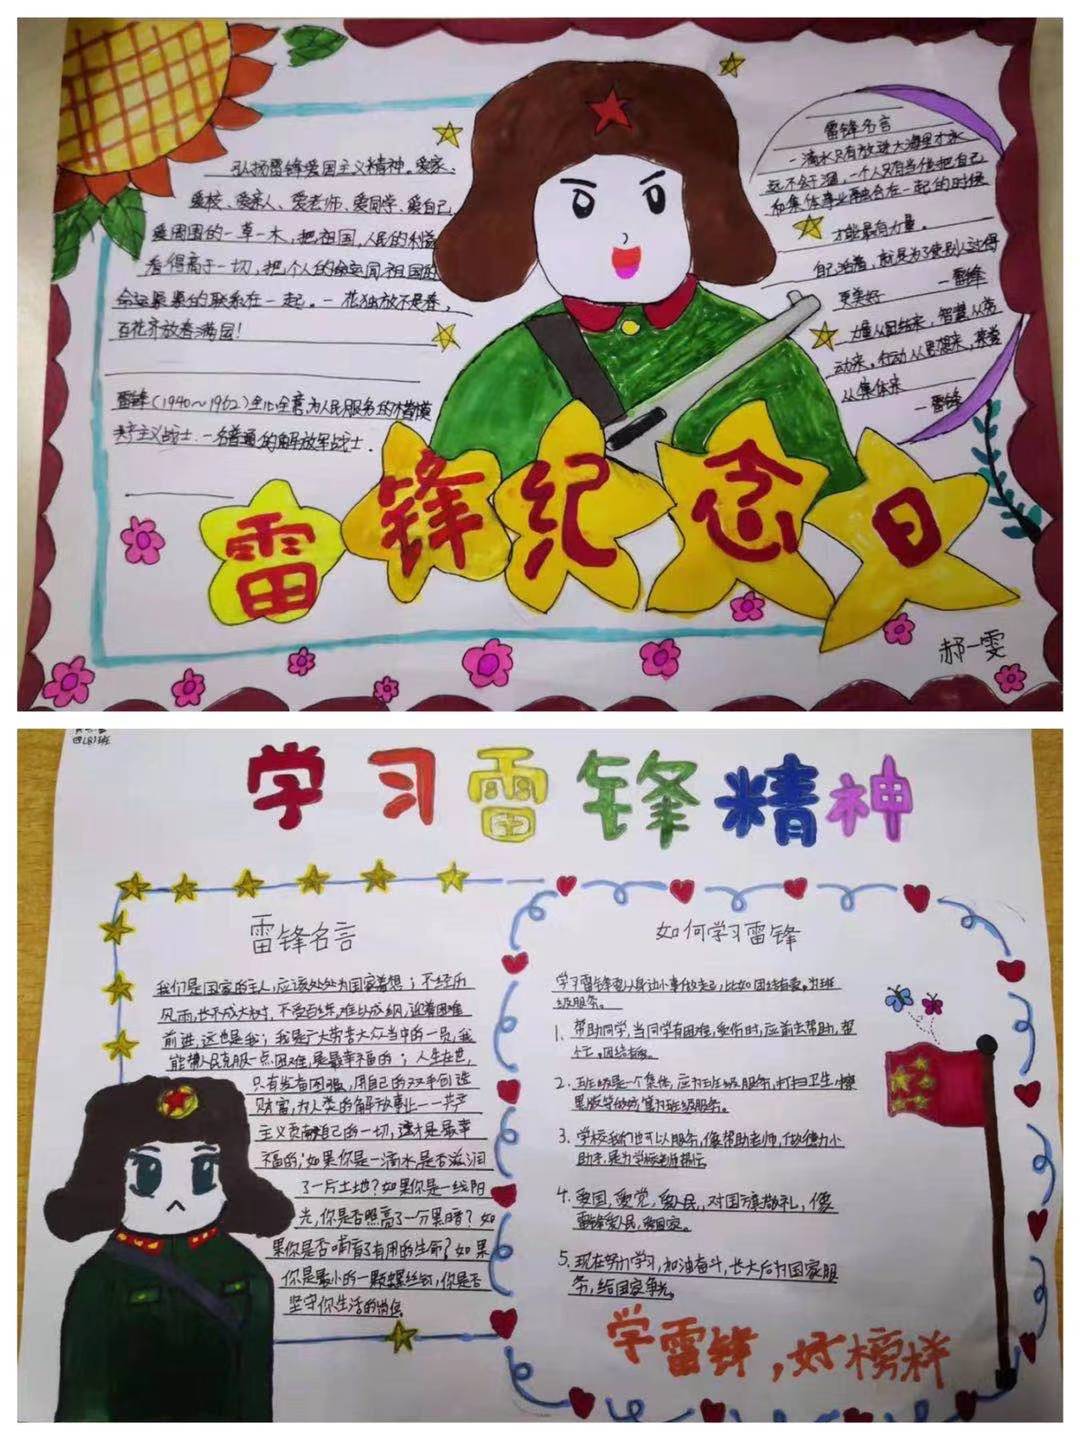 弘扬雷锋爱国主义精神。爱家、
爱校、爱亲人、爱老师、爱同学、爱自己,
爱周围的一草一木,把祖国,人民的利益
看得高于一切,把个人的命运同祖国的
命运紧紧的联系在一起。一花独放不是春,
百花齐放春满园!
雷锋(1940~1962)全心全意为人民服务的楷模
共产主义战士.一名普通的解放军战士.
雷锋名言
一滴水只有放进大海里才永
远不会干涸,一个人只有当他把自己
和集体事业融合在一起的时候
才能最有力量。
自己活着,就是为了使别人过得
更美好 —雷锋
力量从团结来,智慧从劳
动来,行动从思想来,荣誉
从集体来
—雷锋
雷锋纪念日
郝一雯
四(8)班
学习雷锋精神
雷锋名言
我们是国家的主人,应该处处为国家着想;不经历
风雨,也长不成大树,不受百练,难以成钢,迎着困难
前进,这也是我;我是广大劳苦大众当中的一员,我
能帮人民克服一点困难,是最幸福的;人生在世,
只有发奋图强,用自己的双手创造
财富,为人类的解放事业一一共产
主义贡献自己的一切,这才是最幸
福的;如果你是一滴水,是否滋润
了一片土地?如果你是一线阳
光,你是否照亮了一分黑暗?如
果你是否哺育了有用的生命?如果
你是最小的一颗螺丝钉,你是否
坚守你生活的岗位
如何学习雷锋
学习雷锋要从身边小事做起,比如团结有爱。为班
级服务。
1.帮助同学,当同学有困难,受伤时,应前去帮助,帮
2.班级是一个集体,应为班级服务,打扫卫生,擦
黑板等的成为班级服务。
3.学校我们也可以服务,像帮助老师,做德力小
助手,
4.爱国,爱党,爱人民,对国旗敬礼,像
雷锋爱人民,爱国家。
5.现在努力学习,加油奋斗,长大后为国家服
务,给国家争光。
学雷锋,好榜样